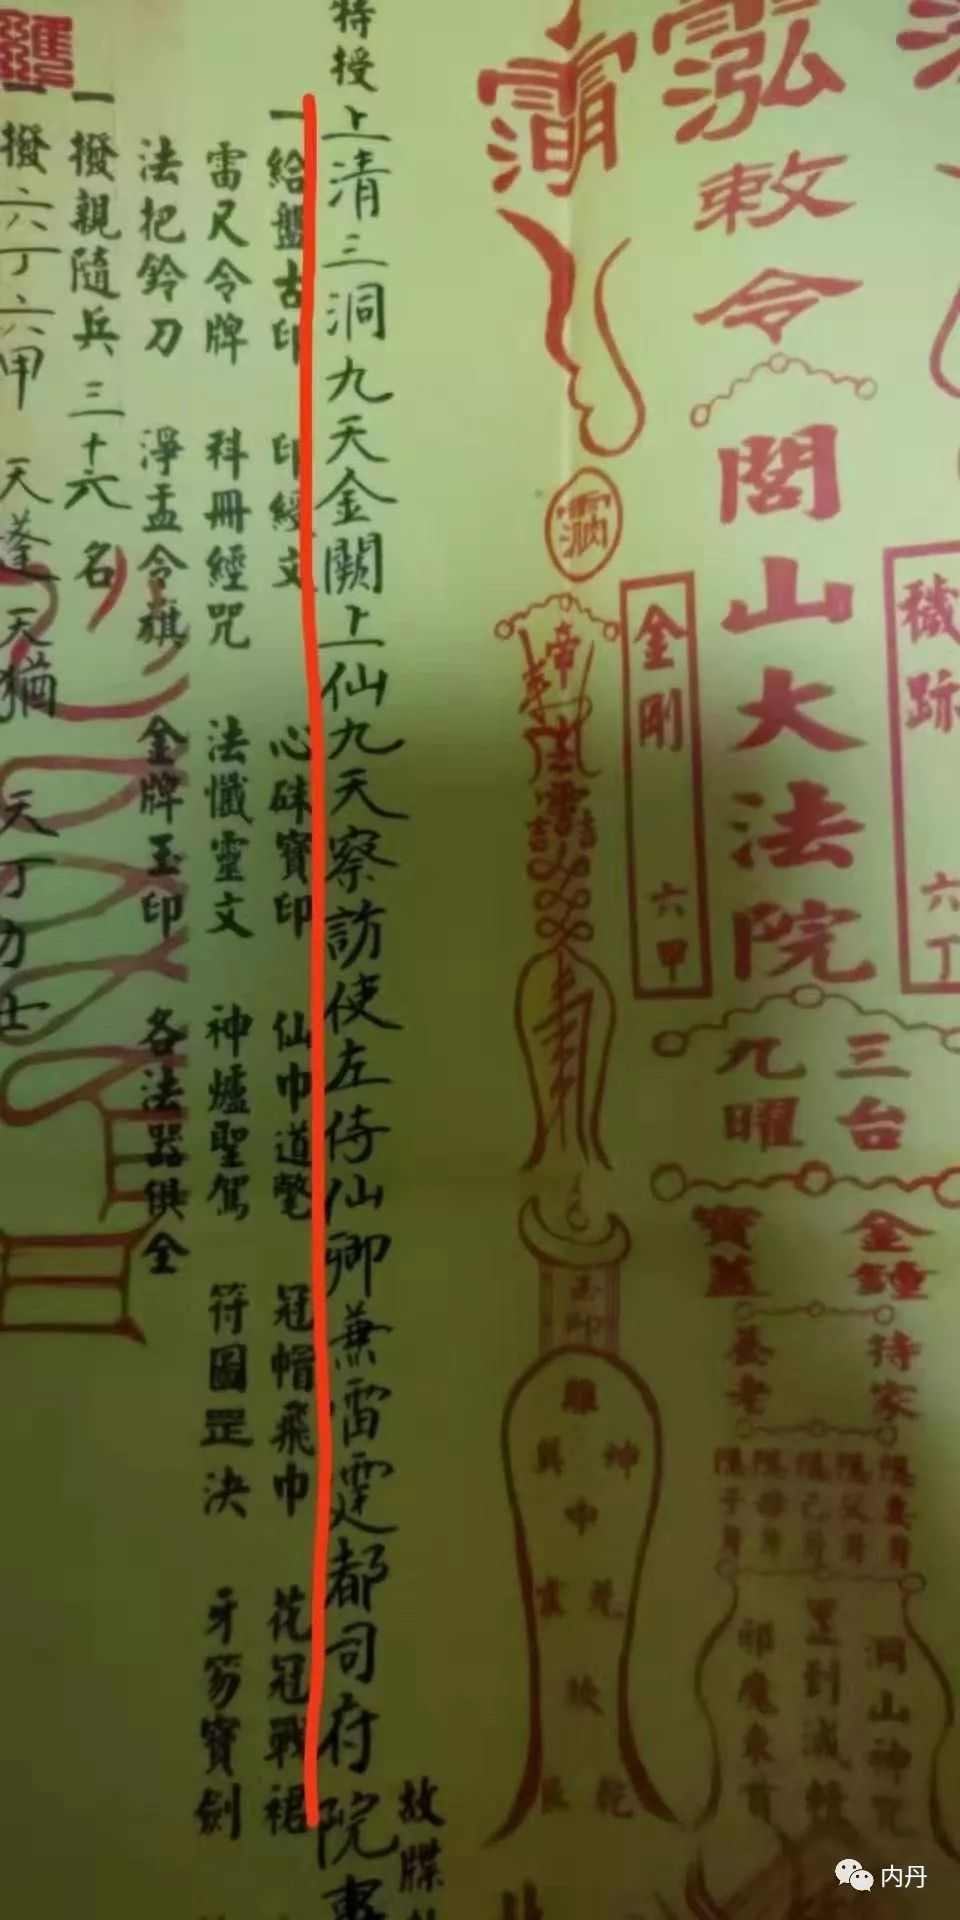 泓
敕令
閭山大法院
三台
九曜
金鐘
寶蓋
罡到滅
洞山神咒
邪魔束首
穢跡
六丁
金剛
六甲
帝
離
巽 坤
中
故牒
特授上清三洞九天金闕上仙九天察訪使左侍仙卿兼雷霆都司府院事
一給盤古印 印經文 心硃寶印 仙巾道氅 冠帽飛巾 花冠戰裙
雷尺令牌 科冊經咒 法懺靈文 神爐聖駕 符圖罡決 牙笏寶劍
法把鈴刀 淨盂令旗 金牌玉印 各法器俱全
一撥親隨兵三十六名
一撥六丁六甲 天蓬天猶 天丁力士
内丹